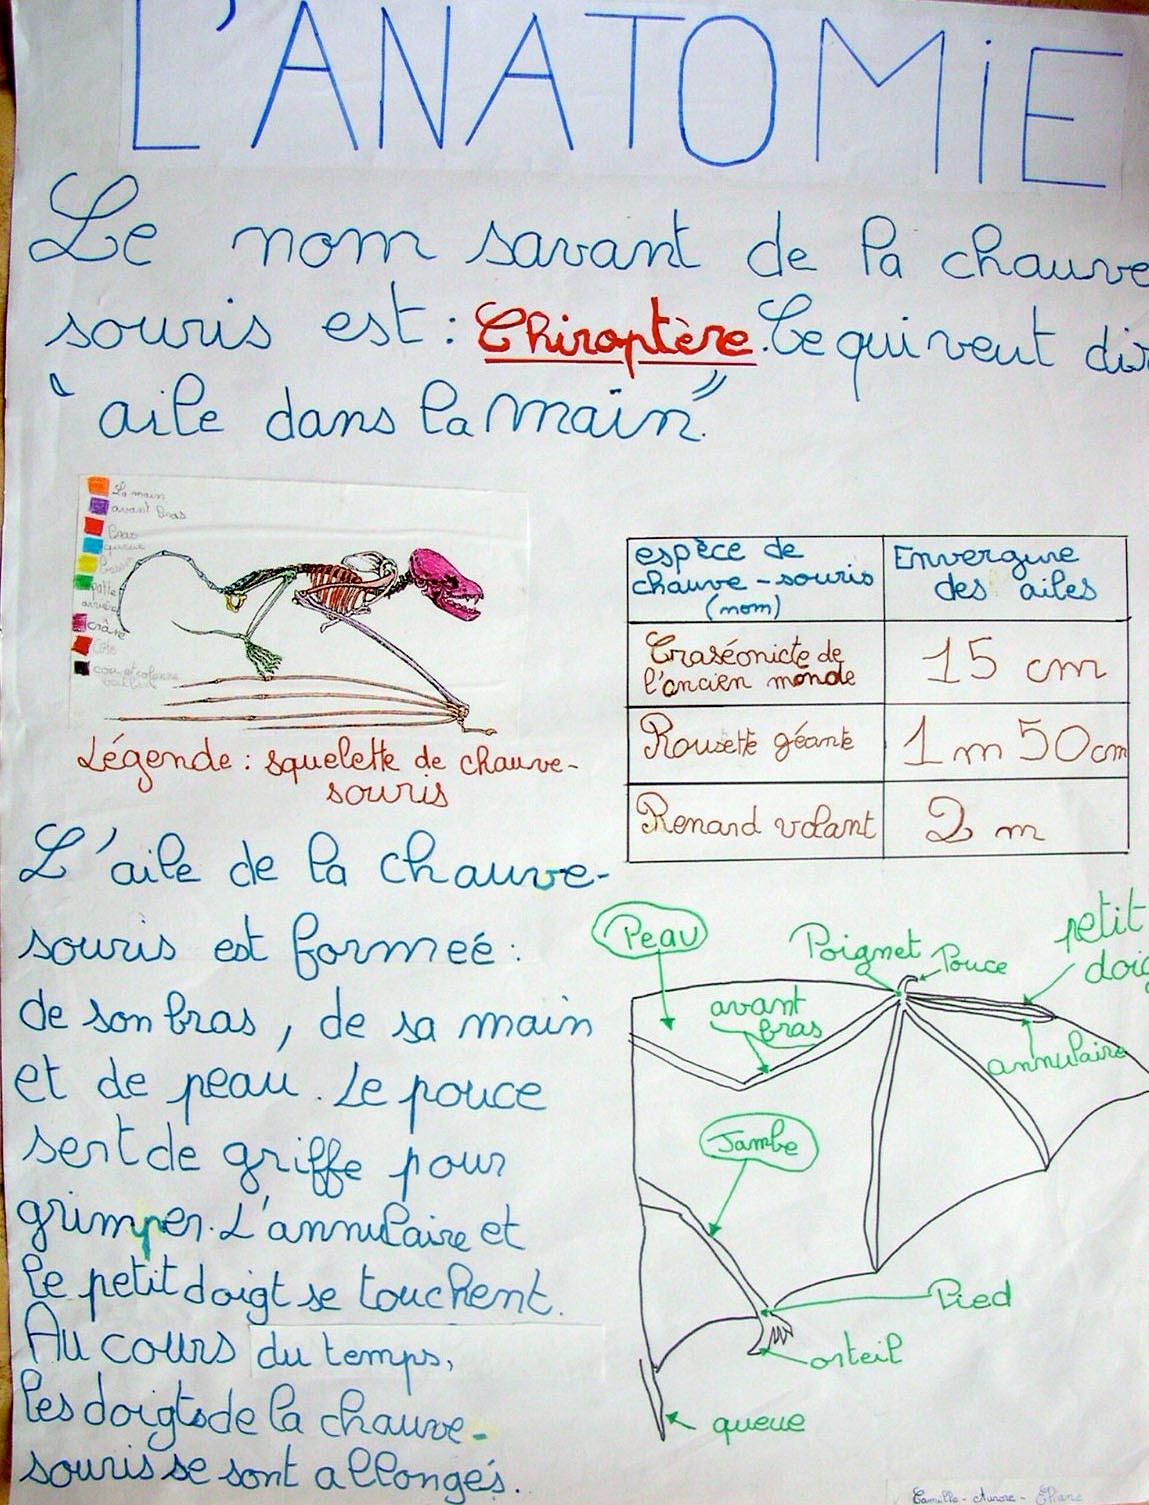 L'ANATOMiE
Le nom savant de la chauve
souris est : Chiroptère. Ce qui veut dir
"aile dans la main".
La main
avant bras
bras
queue
patte
arrière
crâne
Côte
cou et colonne
Légende : squelette de chauve-
souris
espèce de
chauve-souris
(nom)
Envergure
des ailes
Craséonicte de
l'ancien monde
15 cm
Rousette géante
1 m 50 cm
Renard volant
2 m
L'aile de la chauve-
souris est formeé :
de son bras, de sa main
et de peau. Le pouce
sert de griffe pour
grimper. L'annulaire et
le petit doigt se touchent.
Au cours du temps,
les doigts de la chauve-
souris se sont allongés.
Peau
Poignet
Pouce
petit
doig
avant
bras
annulaire
Jambe
Pied
orteil
queue
Camille - Aurore - Eliane